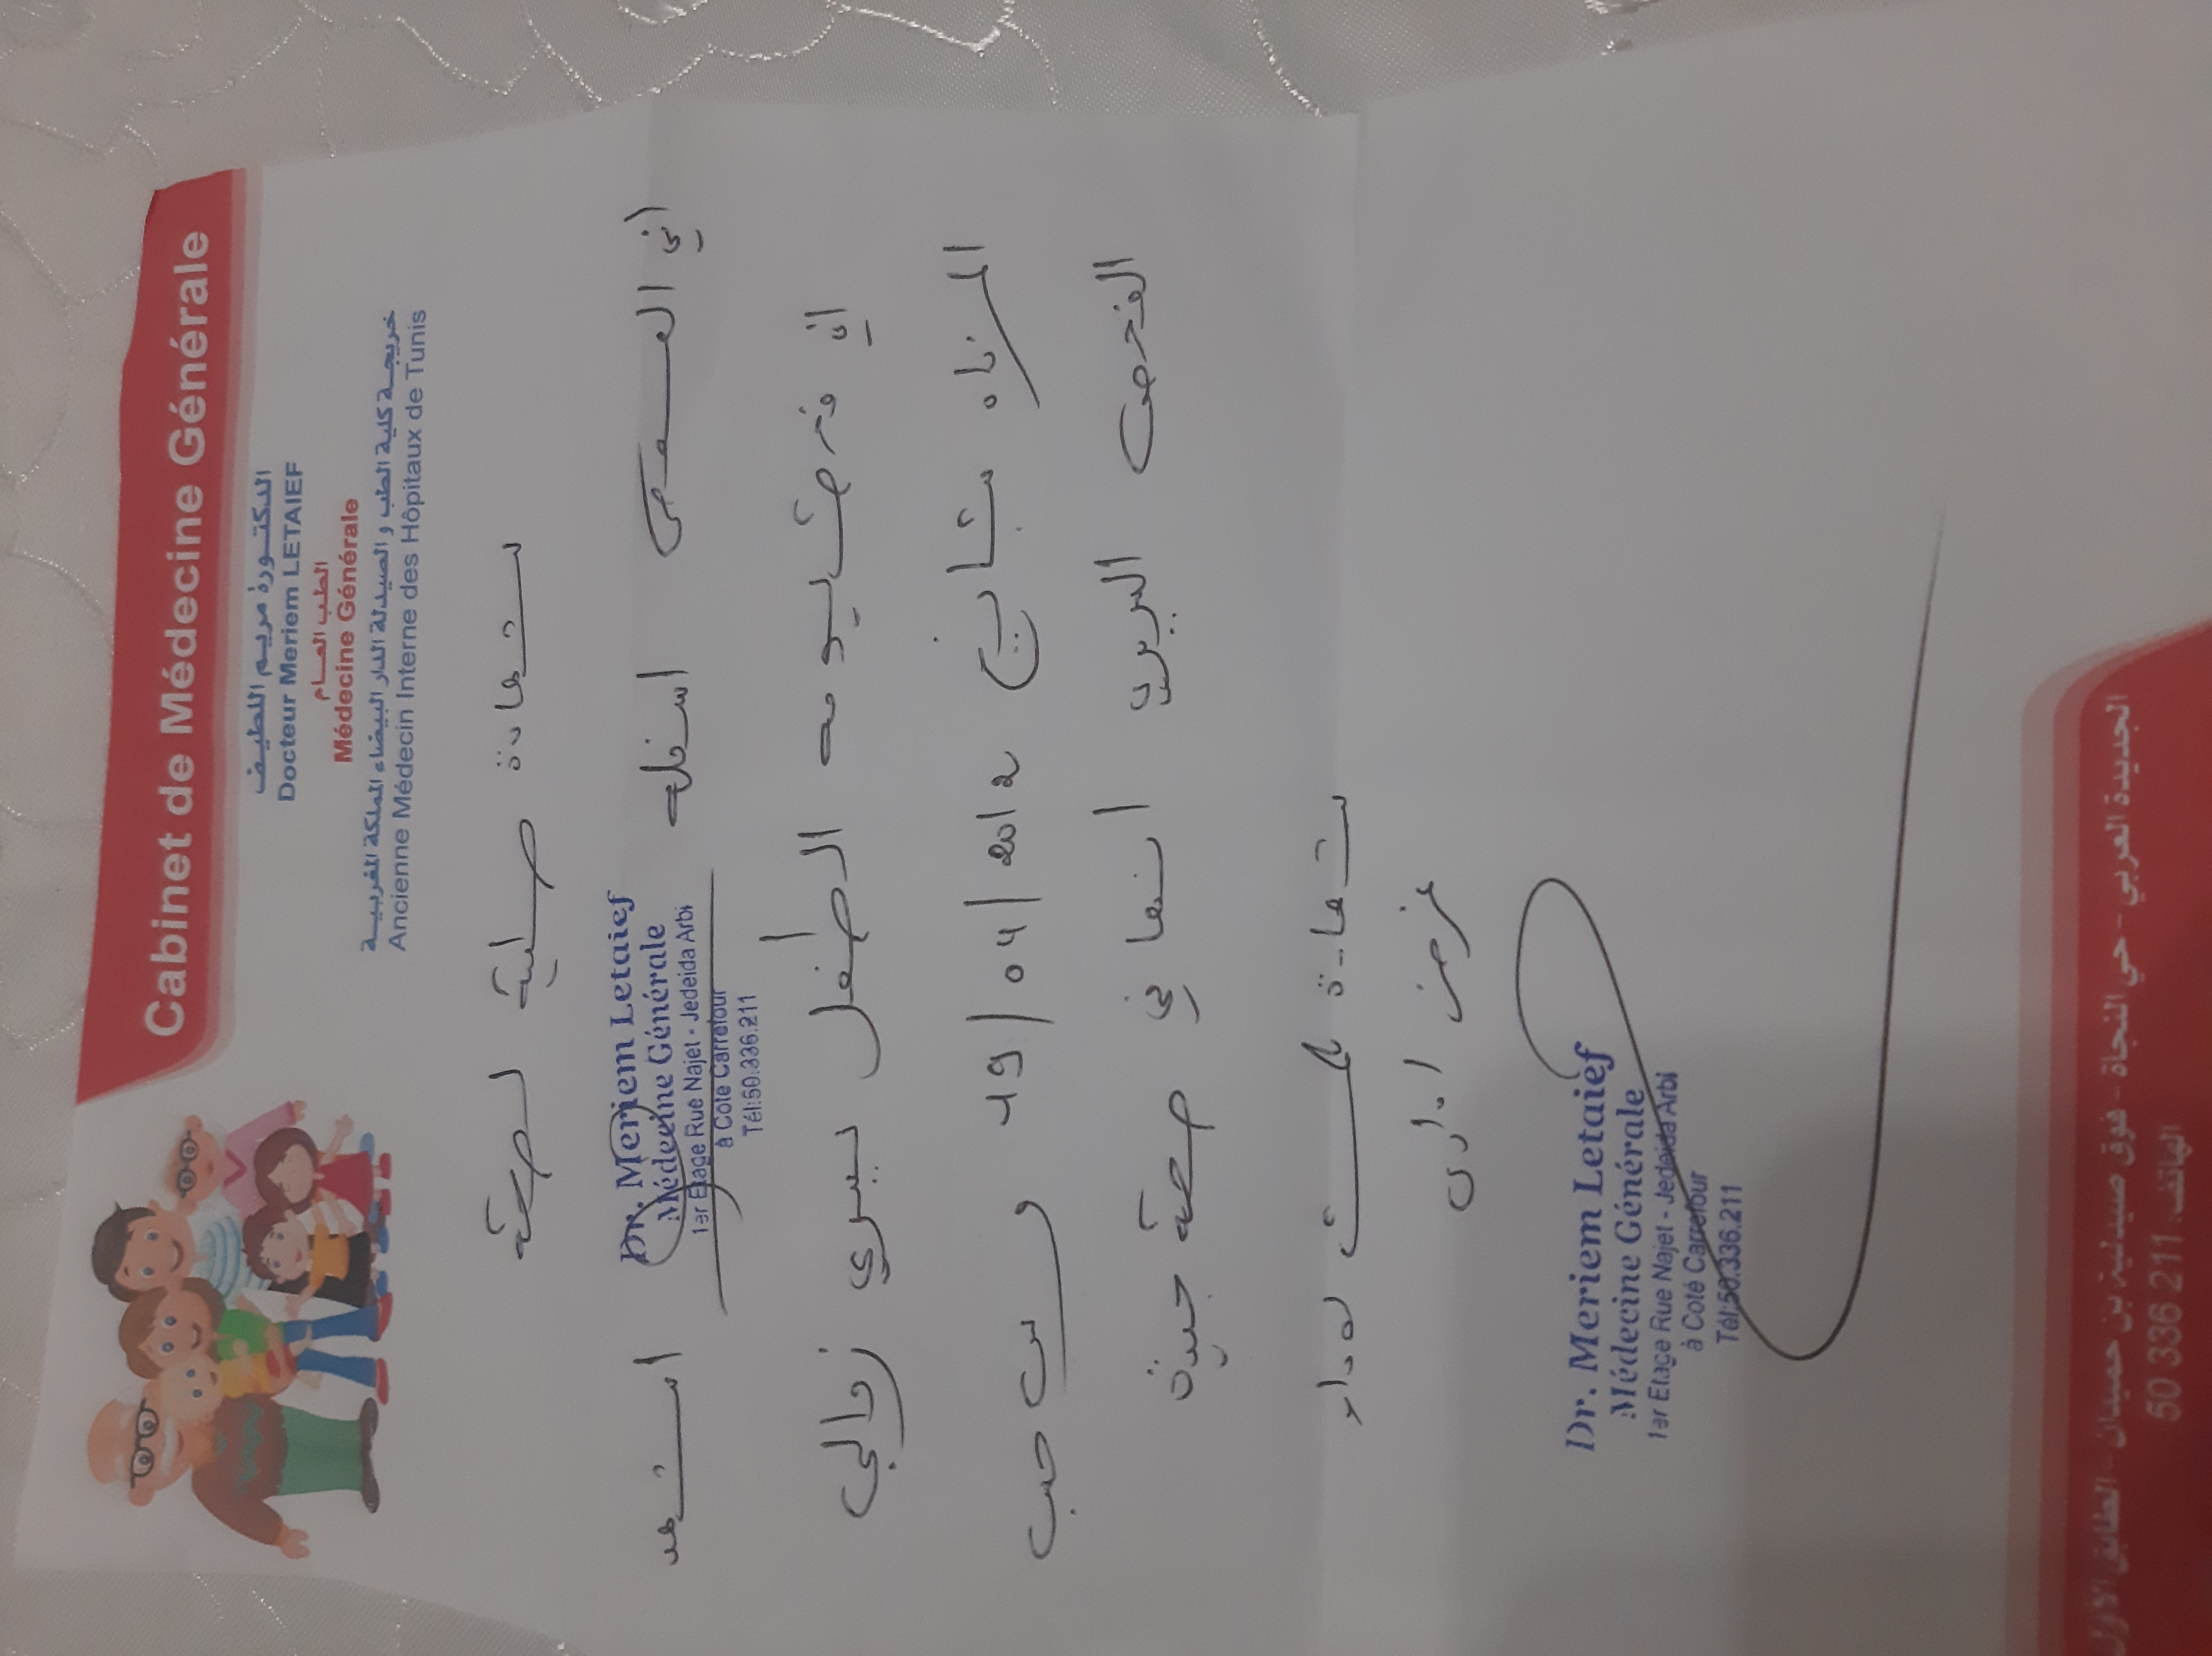 Cabinet de Médecine Générale
الدكتورة مريم اللطيف
Docteur Meriem LETAIEF
الطب العام
Médecine Générale
خريجة كلية الطب و الصيدلة الدار البيضاء المملكة المغربية
Ancienne Médecin Interne des Hôpitaux de Tunis
شهادة طبية
إني الممضي أسفله
Dr. Meriem Letaief
Médecine Générale
1er Etage Rue Najet - Jedeida Arbi
à Coté Carrefour
Tél:50.336.211
أشهد
أني فحصت اليوم الطفل يسري زوالي
المزداد بتاريخ 19/04/2012 و حسب
الفحص السريري أنها في صحة جيدة
شهادة
غرض إداري
Dr. Meriem Letaief
Médecine Générale
1er Etage Rue Najet - Jedeida Arbi
à Coté Carrefour
Tél:50.336.211
الجديدة العربي - حي النجاة - فوق صيدلية بن حميدان - الطابق الأول
الهاتف: 50 336 211